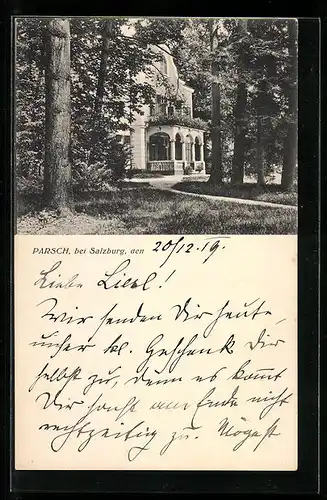 PARSCH, bei Salzburg, den 20/12. 19.
Liebe Liesl!
Wir senden Dir heute,
unser kl. Geschenk Dir
selbst zu, denn es kommt
Dir sonst am Ende nicht
rechtzeitig zu. Mögest